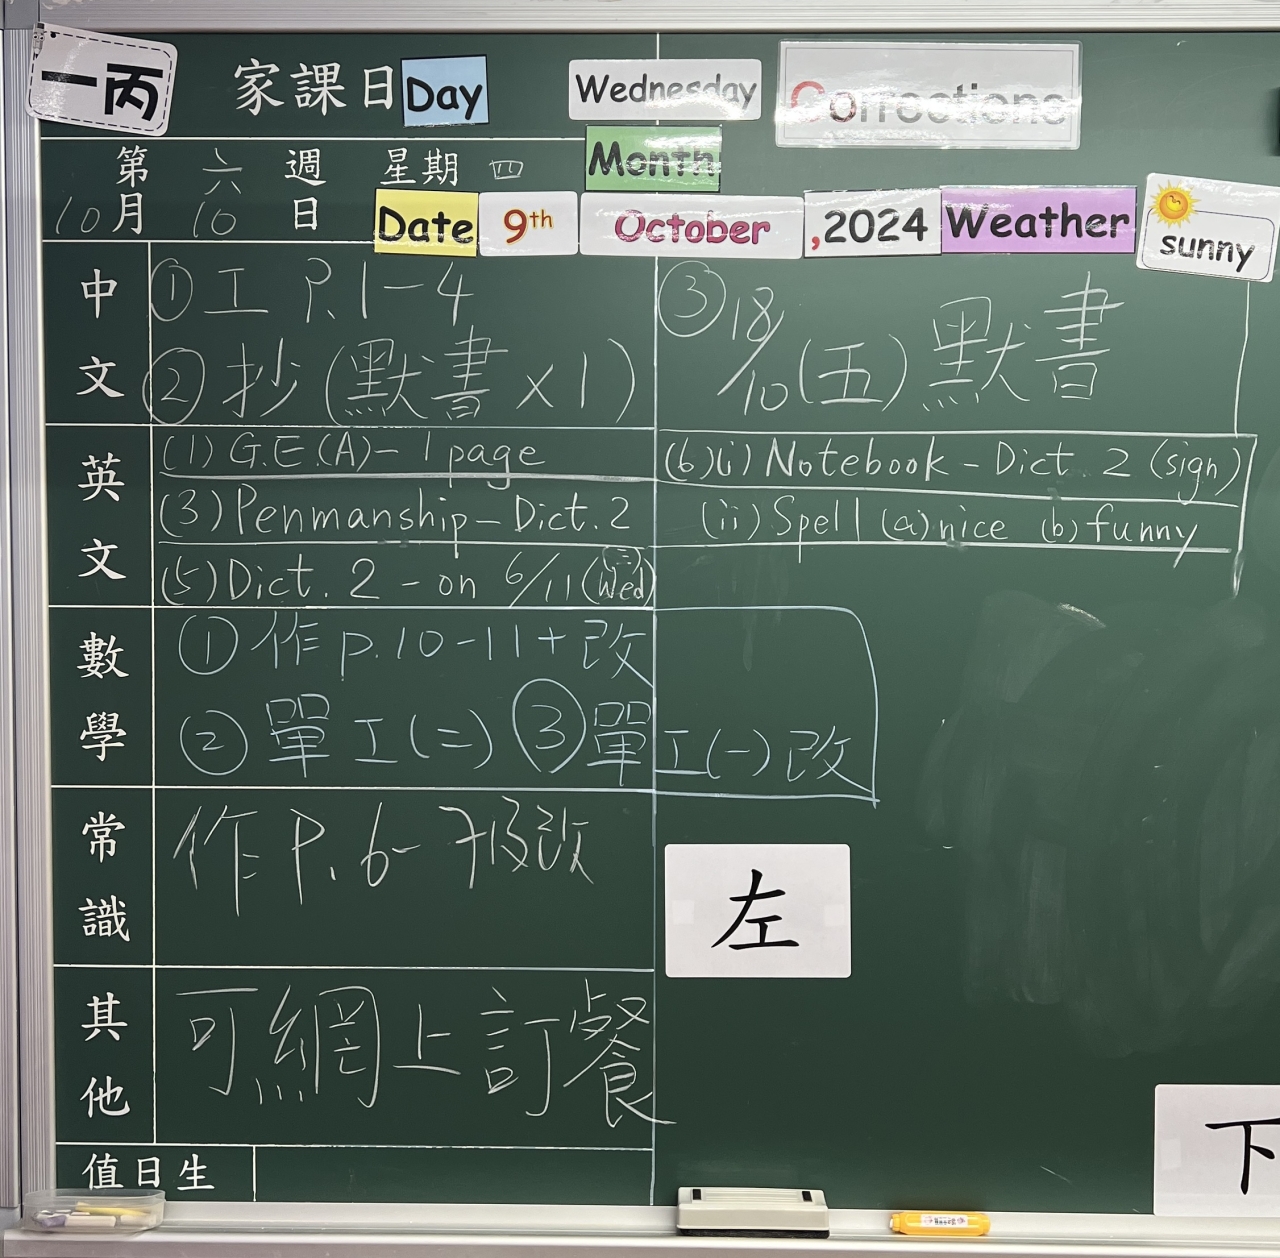 一丙 家課日 Day Wednesday Corrections
第六週 星期四 Month
10月10日 Date 9th October ,2024 Weather sunny
中文 ①工 P.1-4
②抄(默書x1)
③18/10(五)默書
英文 (1) G.E.(A)- 1 page
(3) Penmanship - Dict. 2
(5) Dict. 2 - on 6/11 (三)(Wed)
(6)(i) Notebook - Dict. 2 (sign)
(ii) Spell (a) nice (b) funny
數學 ①作 p.10-11+改
②單工(二) ③單工(一)改
常識 作 P.6-7及改
左
其他 可網上訂餐
下
值日生